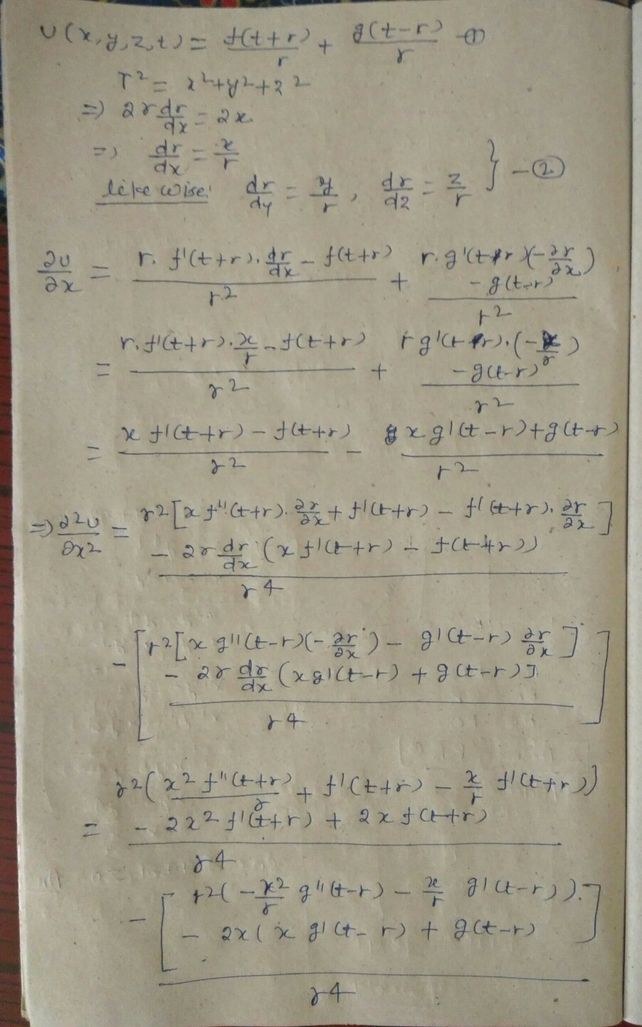 U(x,y,z,t) = f(t+r)/r + g(t-r)/r -①
r² = x²+y²+z²
=> 2r dr/dx = 2x
=> dr/dx = x/r
likewise: dr/dy = y/r, dr/dz = z/r } -②
∂u/∂x = (r. f'(t+r). dr/dx - f(t+r))/r² + (r. g'(t-r)(-∂r/∂x) - g(t-r))/r²
= (r. f'(t+r). x/r - f(t+r))/r² + (r g'(t-r). (-x/r) - g(t-r))/r²
= (x f'(t+r) - f(t+r))/r² - (x g'(t-r) + g(t-r))/r²
=> ∂²u/∂x² = (r²[x f''(t+r). ∂r/∂x + f'(t+r) - f'(t+r). ∂r/∂x] - 2r dr/dx (x f'(t+r) - f(t+r)))/r4
- [(r²[x g''(t-r)(-∂r/∂x) - g'(t-r) ∂r/∂x] - 2r dr/dx (x g'(t-r) + g(t-r)])/r4]
= (r²(x² f''(t+r)/r + f'(t+r) - x/r f'(t+r)) - 2x² f'(t+r) + 2x f(t+r))/r4
- [r²(-x²/r g''(t-r) - x/r g'(t-r)). - 2x(x g'(t-r) + g(t-r)]/r4